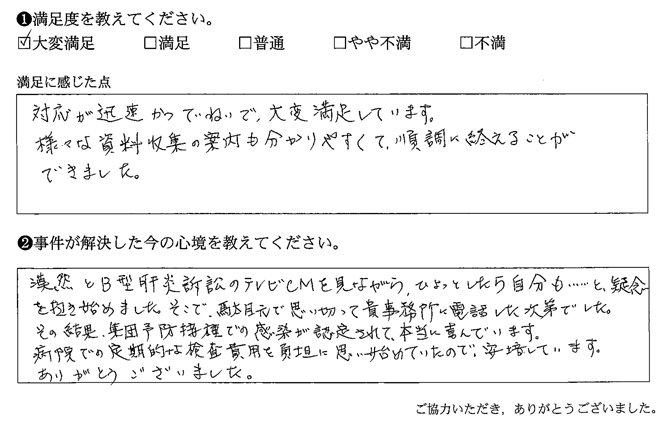 ❶満足度を教えてください。
☑大変満足 □満足 □普通 □やや不満 □不満
満足に感じた点
対応が迅速かつていねいで、大変満足しています。
様々な資料収集の案内も分かりやすくて、順調に終えることが
できました。
❷事件が解決した今の心境を教えてください。
漠然とB型肝炎訴訟のテレビCMを見ながら、ひょっとしたら自分も……と、疑念
を抱き始めました。そこで、駄目元で思い切って貴事務所に電話した次第でした。
その結果、集団予防接種での感染が認定されて、本当に喜んでいます。
病院での定期的な検査費用を負担に思い始めていたので、安堵しています。
ありがとうございました。
ご協力いただき、ありがとうございました。